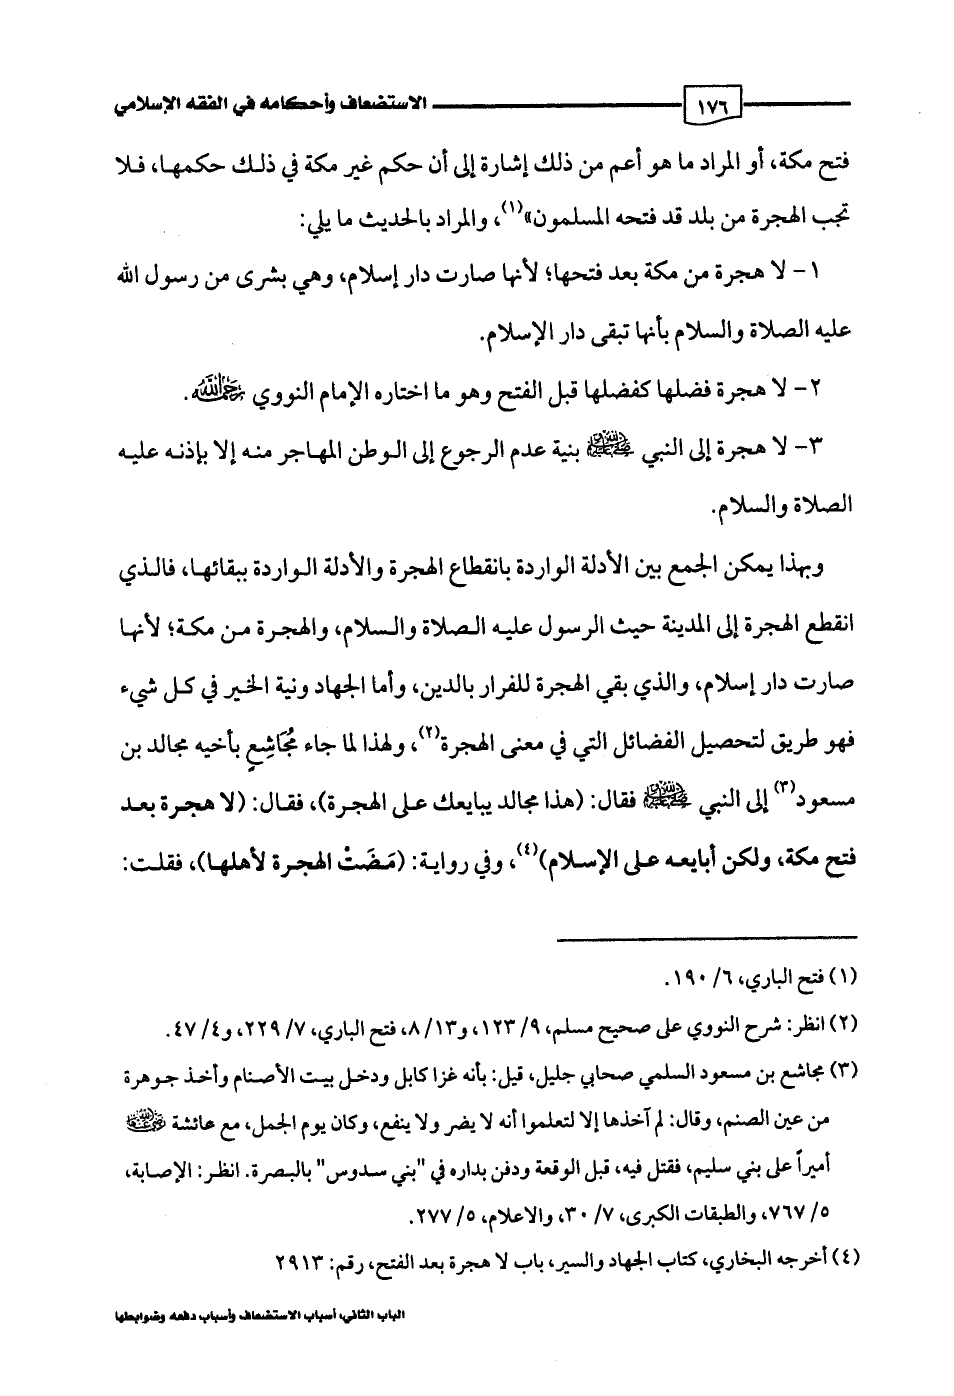 ١٧٦ الاستضعاف وأحكامه في الفقه الإسلامي
فتح مكة، أو المراد ما هو أعم من ذلك إشارة إلى أن حكم غير مكة في ذلك حكمها، فلا
تجب الهجرة من بلد قد فتحه المسلمون»(١)، والمراد بالحديث ما يلي:
١- لا هجرة من مكة بعد فتحها؛ لأنها صارت دار إسلام، وهي بشرى من رسول الله
عليه الصلاة والسلام بأنها تبقى دار الإسلام.
٢- لا هجرة فضلها كفضلها قبل الفتح وهو ما اختاره الإمام النووي رحمه الله.
٣- لا هجرة إلى النبي ﷺ بنية عدم الرجوع إلى الوطن المهاجر منه إلا بإذنه عليه
الصلاة والسلام.
وبهذا يمكن الجمع بين الأدلة الواردة بانقطاع الهجرة والأدلة الواردة ببقائها، فالذي
انقطع الهجرة إلى المدينة حيث الرسول عليه الصلاة والسلام، والهجرة من مكة؛ لأنها
صارت دار إسلام، والذي بقي الهجرة للفرار بالدين، وأما الجهاد ونية الخير في كل شيء
فهو طريق لتحصيل الفضائل التي في معنى الهجرة(٢)، ولهذا لما جاء مُجَاشِعٍ بأخيه مجالد بن
مسعود(٣) إلى النبي ﷺ فقال: (هذا مجالد يبايعك على الهجرة)، فقال: (لا هجرة بعد
فتح مكة، ولكن أبايعه على الإسلام)(٤)، وفي رواية: (مَضَتْ الهجرة لأهلها)، فقلت:
(١) فتح الباري، ٦/ ١٩٠.
(٢) انظر: شرح النووي على صحيح مسلم، ٩/ ١٢٣، و١٣/ ٨، فتح الباري، ٧/ ٢٢٩، و٤/ ٤٧.
(٣) مجاشع بن مسعود السلمي صحابي جليل، قيل: بأنه غزا كابل ودخل بيت الأصنام وأخذ جوهرة
من عين الصنم، وقال: لم آخذها إلا لتعلموا أنه لا يضر ولا ينفع، وكان يوم الجمل، مع عائشة رضي الله عنها
أميراً على بني سليم، فقتل فيه، قبل الوقعة ودفن بداره في "بني سدوس" بالبصرة. انظر: الإصابة،
٥/ ٧٦٧، والطبقات الكبرى، ٧/ ٣٠، والاعلام، ٥/ ٢٧٧.
(٤) أخرجه البخاري، كتاب الجهاد والسير، باب لا هجرة بعد الفتح، رقم: ٢٩١٣
الباب الثاني: أسباب الاستضعاف وأسباب دفعه وضوابطها